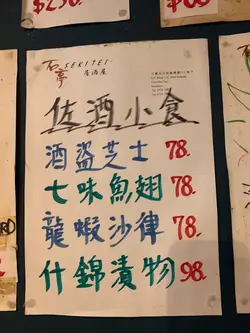 $250.
$88
石亭 SEKITEI.
居酒屋
佐酒小食
酒盗芝士 78.
七味魚翅 78.
龍蝦沙律 78.
什錦漬物 98.